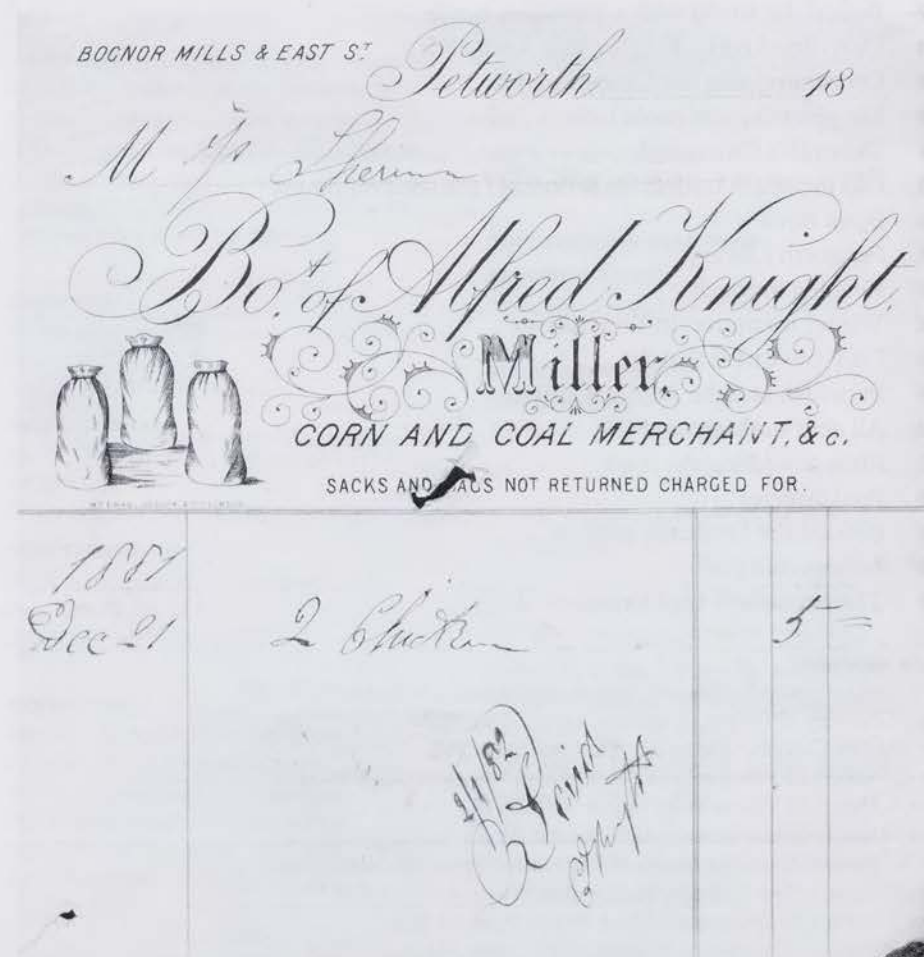 BOGNOR MILLS & EAST ST
Petworth 18
M
Bot. of Alfred Knight.
Miller,
CORN AND COAL MERCHANT, &c.
SACKS AND BAGS NOT RETURNED CHARGED FOR.
1881
Dec 21 2 Chicken 5 =
2/1/82
Paid